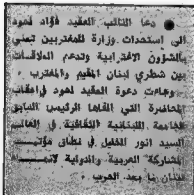 دعا النائب العقيد فؤاد لحود
الى استحداث وزارة للمغتربين تعنى
بالشؤون الاغترابية وتدعم العلاقات
بين شطري لبنان المقيم والمغترب .
وجاءت دعوة العقيد لحود في اعقاب
المحاضرة التي القاها الرئيس السابق
للجامعة اللبنانية الثقافية في العالم
السيد انور الخليل في نطاق مؤتمر
المشاركة العربية والدولية لانماء
لبنان ما بعد الحرب .